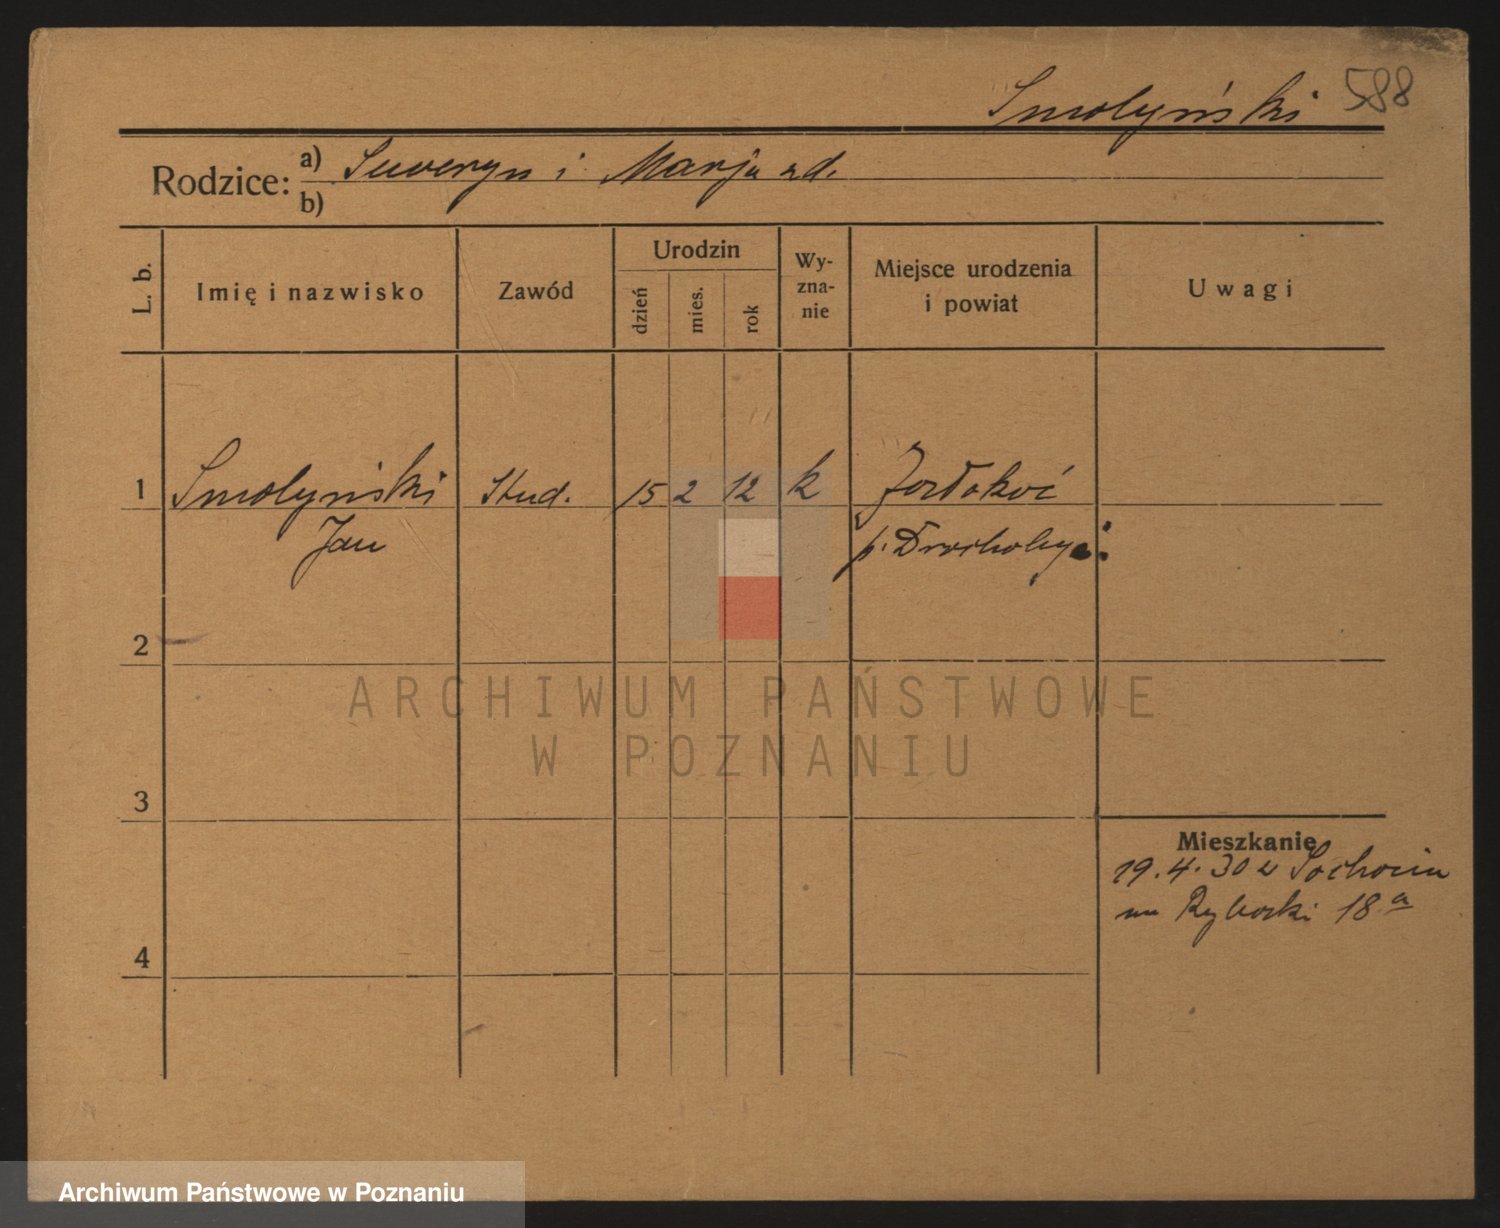 Smolyński 588
Rodzice: a) Seweryn i Marja zd.
b)
L. b.
Imię i nazwisko
Zawód
Urodzin
dzień
mies.
rok
Wy-
zna-
nie
Miejsce urodzenia
i powiat
Uwagi
1 Smolyński Stud. 15 2 12 k
Jan p.
2
3
4
Mieszkanie
19.4.30 z Sochocin
18 a
ARCHIWUM PAŃSTWOWE
W POZNANIU
Archiwum Państwowe w Poznaniu